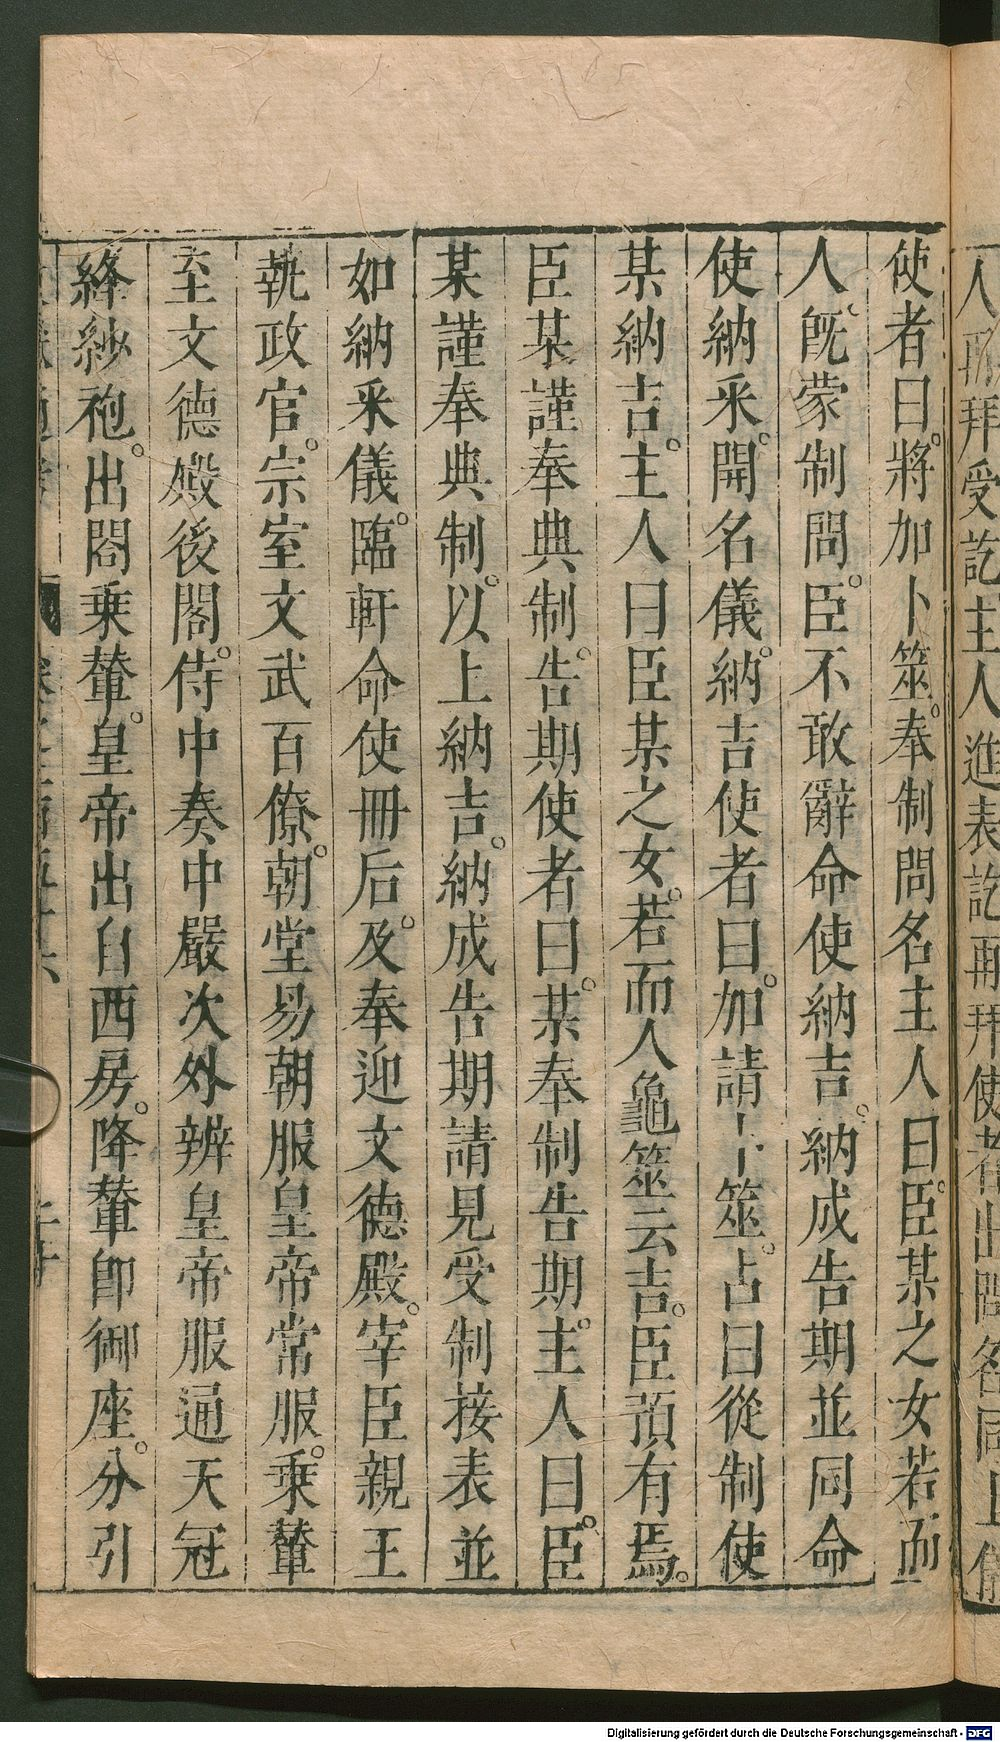 人再拜受訖主人進表訖再拜使者出
使者曰將加卜筮奉制問名主人曰臣某之女若而
人既蒙制問臣不敢辭命使納吉納成告期並同命
使納采開名儀納吉使者曰加請卜筮占曰從制使
某納吉主人曰臣某之女若而人龜筮云吉臣預有焉
臣某謹奉典制告期使者曰某奉制告期主人曰臣
某謹奉典制以上納吉納成告期請見受制接表並
如納采儀臨軒命使冊后及奉迎文德殿宰臣親王
執政官宗室文武百僚朝堂易朝服皇帝常服乘輦
至文德殿後閣侍中奏中嚴次外辨皇帝服通天冠
絳紗袍出閤乘輦皇帝出自西房降輦即御座分引
Digitalisierung gefördert durch die Deutsche Forschungsgemeinschaft - DFG